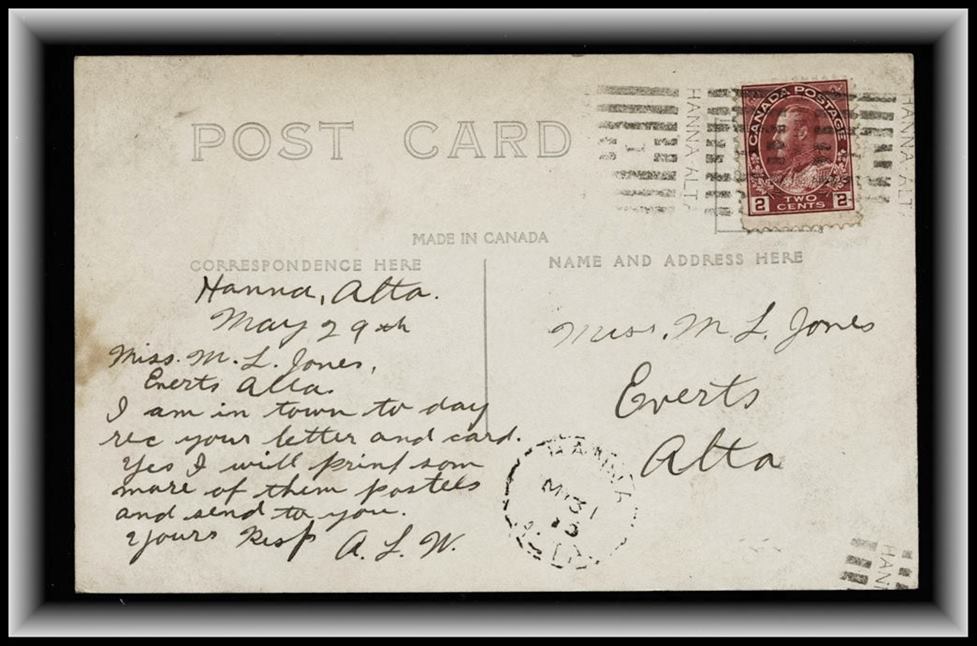 POST CARD
HANNA ALTA
HANNA ALTA
CANADA POSTAGE
2 TWO CENTS 2
MADE IN CANADA
CORRESPONDENCE HERE
NAME AND ADDRESS HERE
Hanna, Alta.
May 29th
Miss. M. L. Jones,
Everts Alta.
I am in town to day
rec your letter and card.
Yes I will print som
more of them postels
and send to you.
Yours Resp A. L. W.
Miss. M L. Jones
Everts
Alta
HANNA
31
HAN